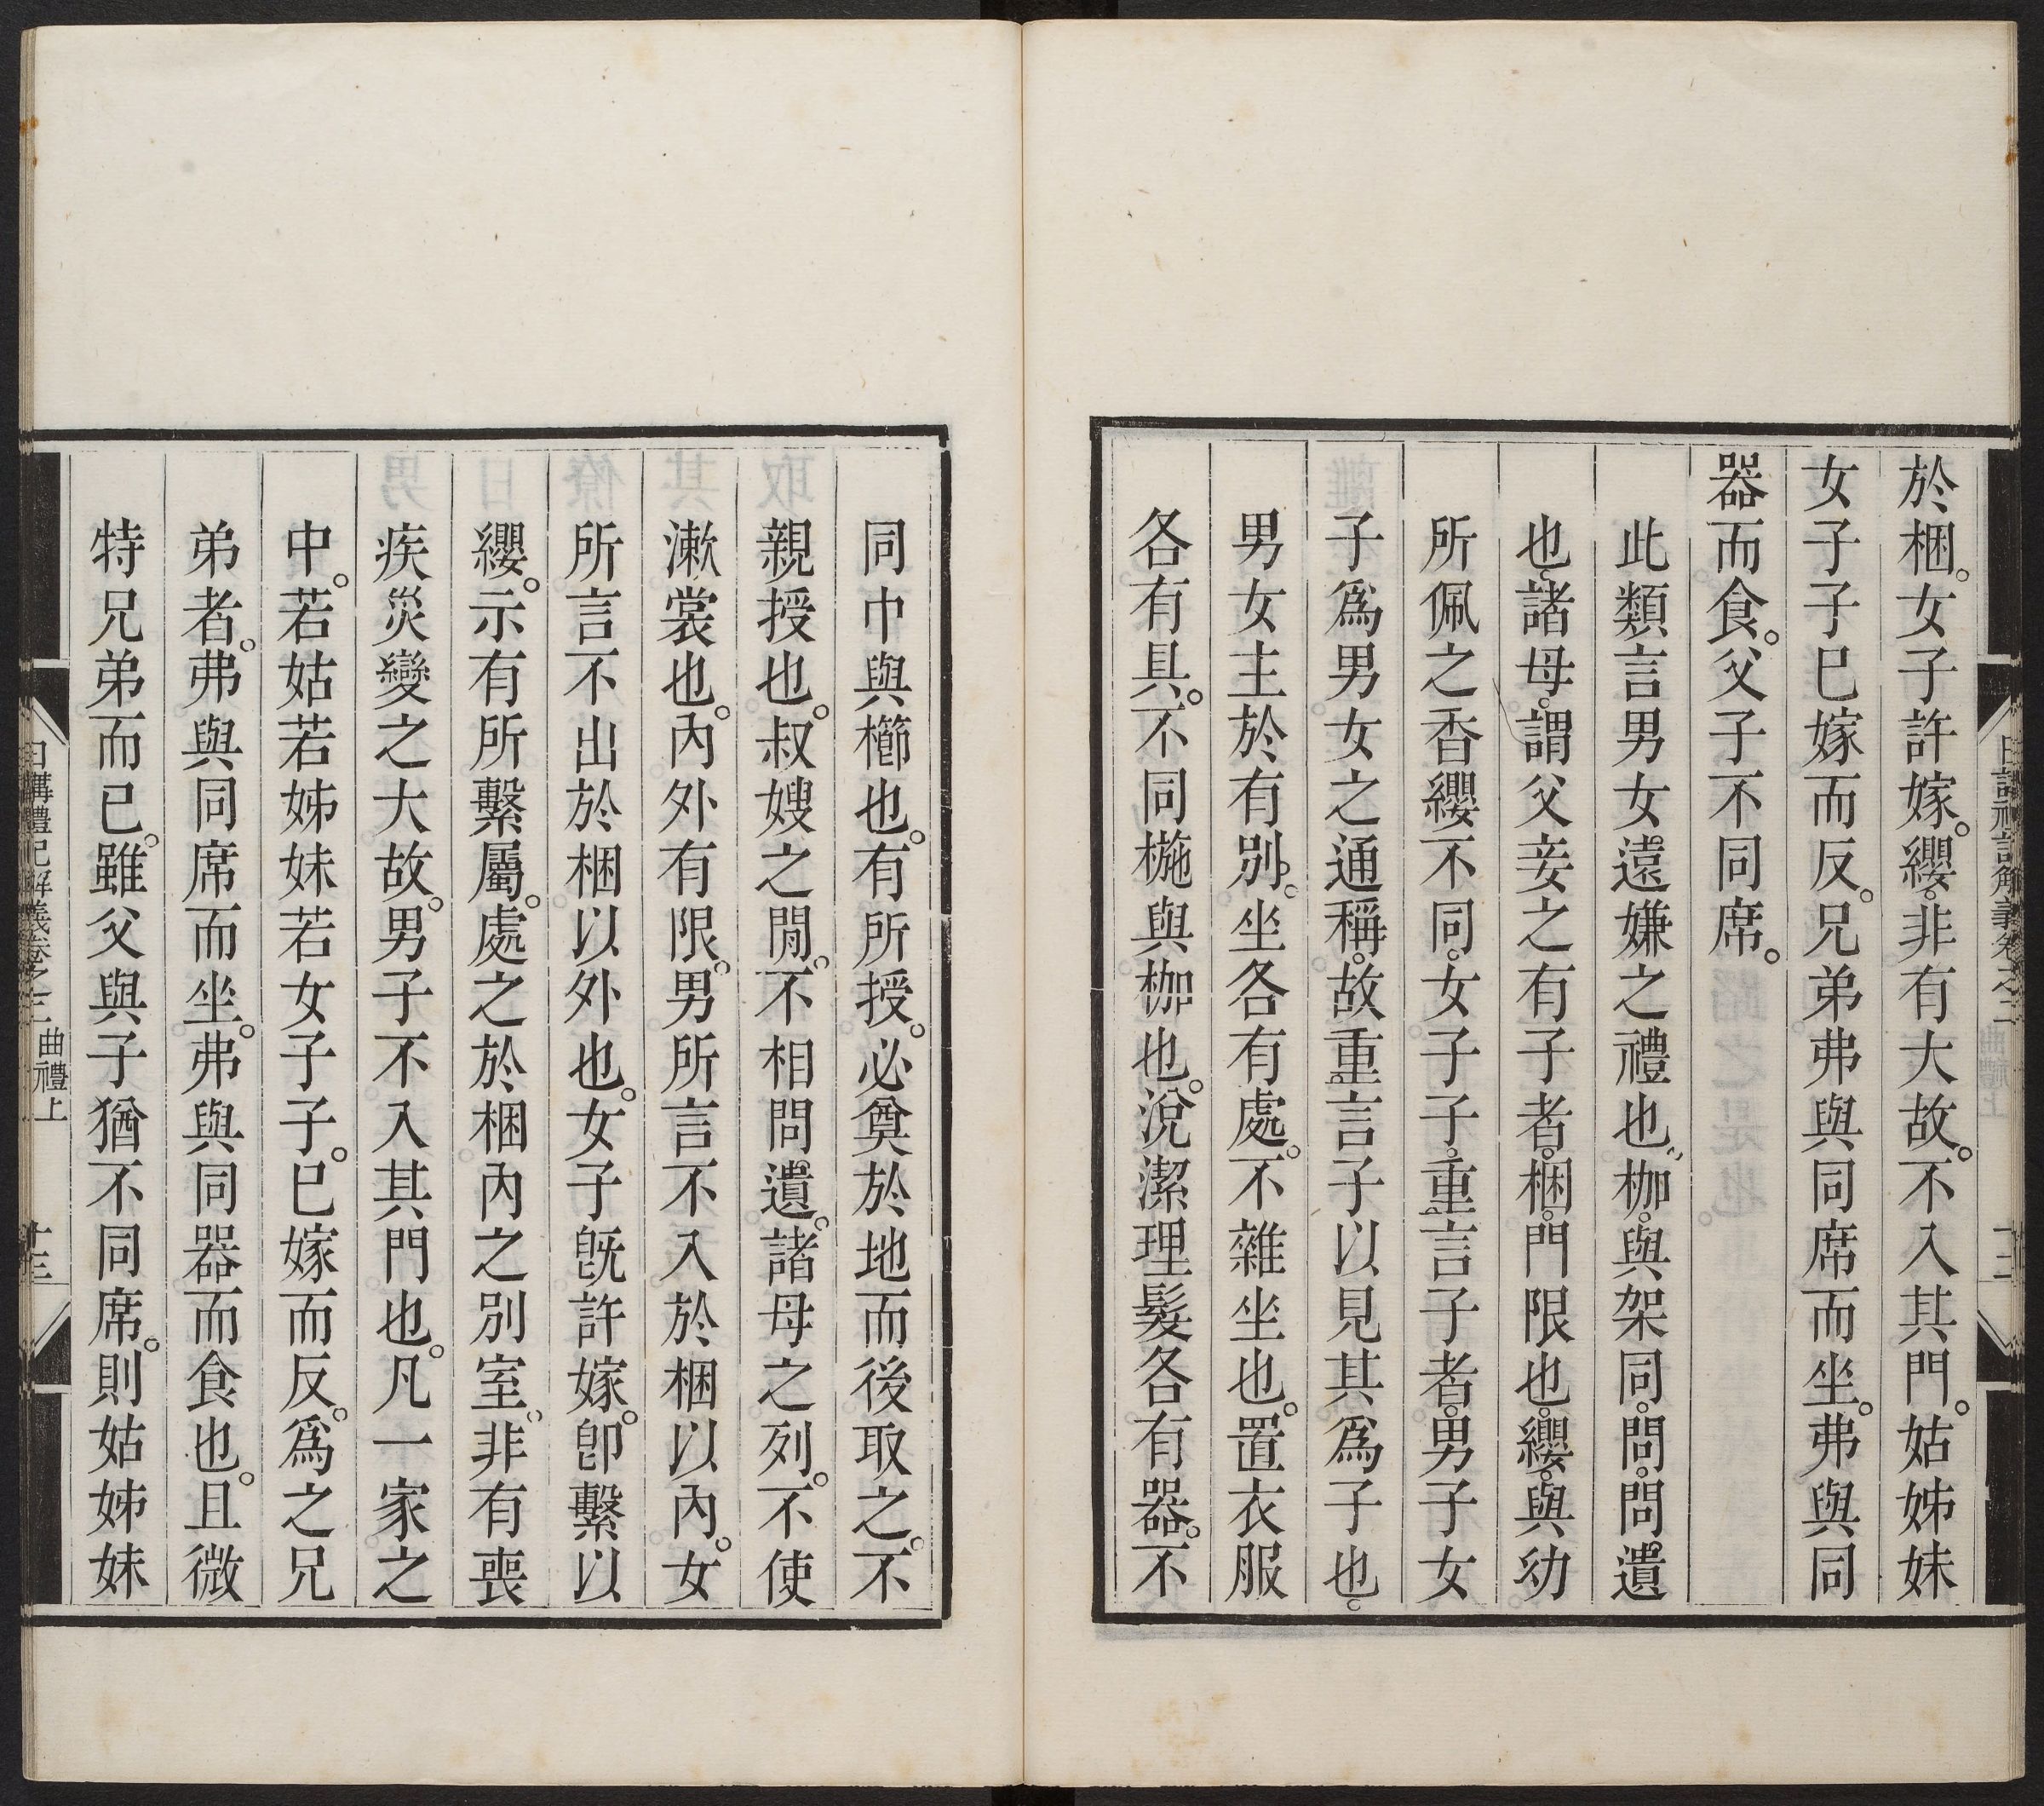 於梱。女子許嫁。纓。非有大故。不入其門。姑姊妹
女子子已嫁而反。兄弟弗與同席而坐。弗與同
器而食。父子不同席。
此類言男女遠嫌之禮也。枷。與架同。問。問遺
也。諸母。謂父妾之有子者。梱。門限也。纓。與幼
所佩之香纓不同。女子子。重言子者。男子女
子爲男女之通稱。故重言子以見其爲子也。
男女主於有別。坐各有處。不雜坐也。置衣服
各有具。不同椸與枷也。涚潔理髮各有器。不
同巾與櫛也。有所授。必奠於地而後取之。不
親授也。叔嫂之閒。不相問遺。諸母之列。不使
漱裳也。內外有限。男所言不入於梱以內。女
所言不出於梱以外也。女子旣許嫁。卽繫以
纓。示有所繫屬。處之於梱內之別室。非有喪
疾災變之大故。男子不入其門也。凡一家之
中。若姑若姊妹若女子子。已嫁而反。爲之兄
弟者。弗與同席而坐。弗與同器而食也。且微
特兄弟而已。雖父與子猶不同席。則姑姊妹
日講禮記解義卷之三 曲禮上 十三